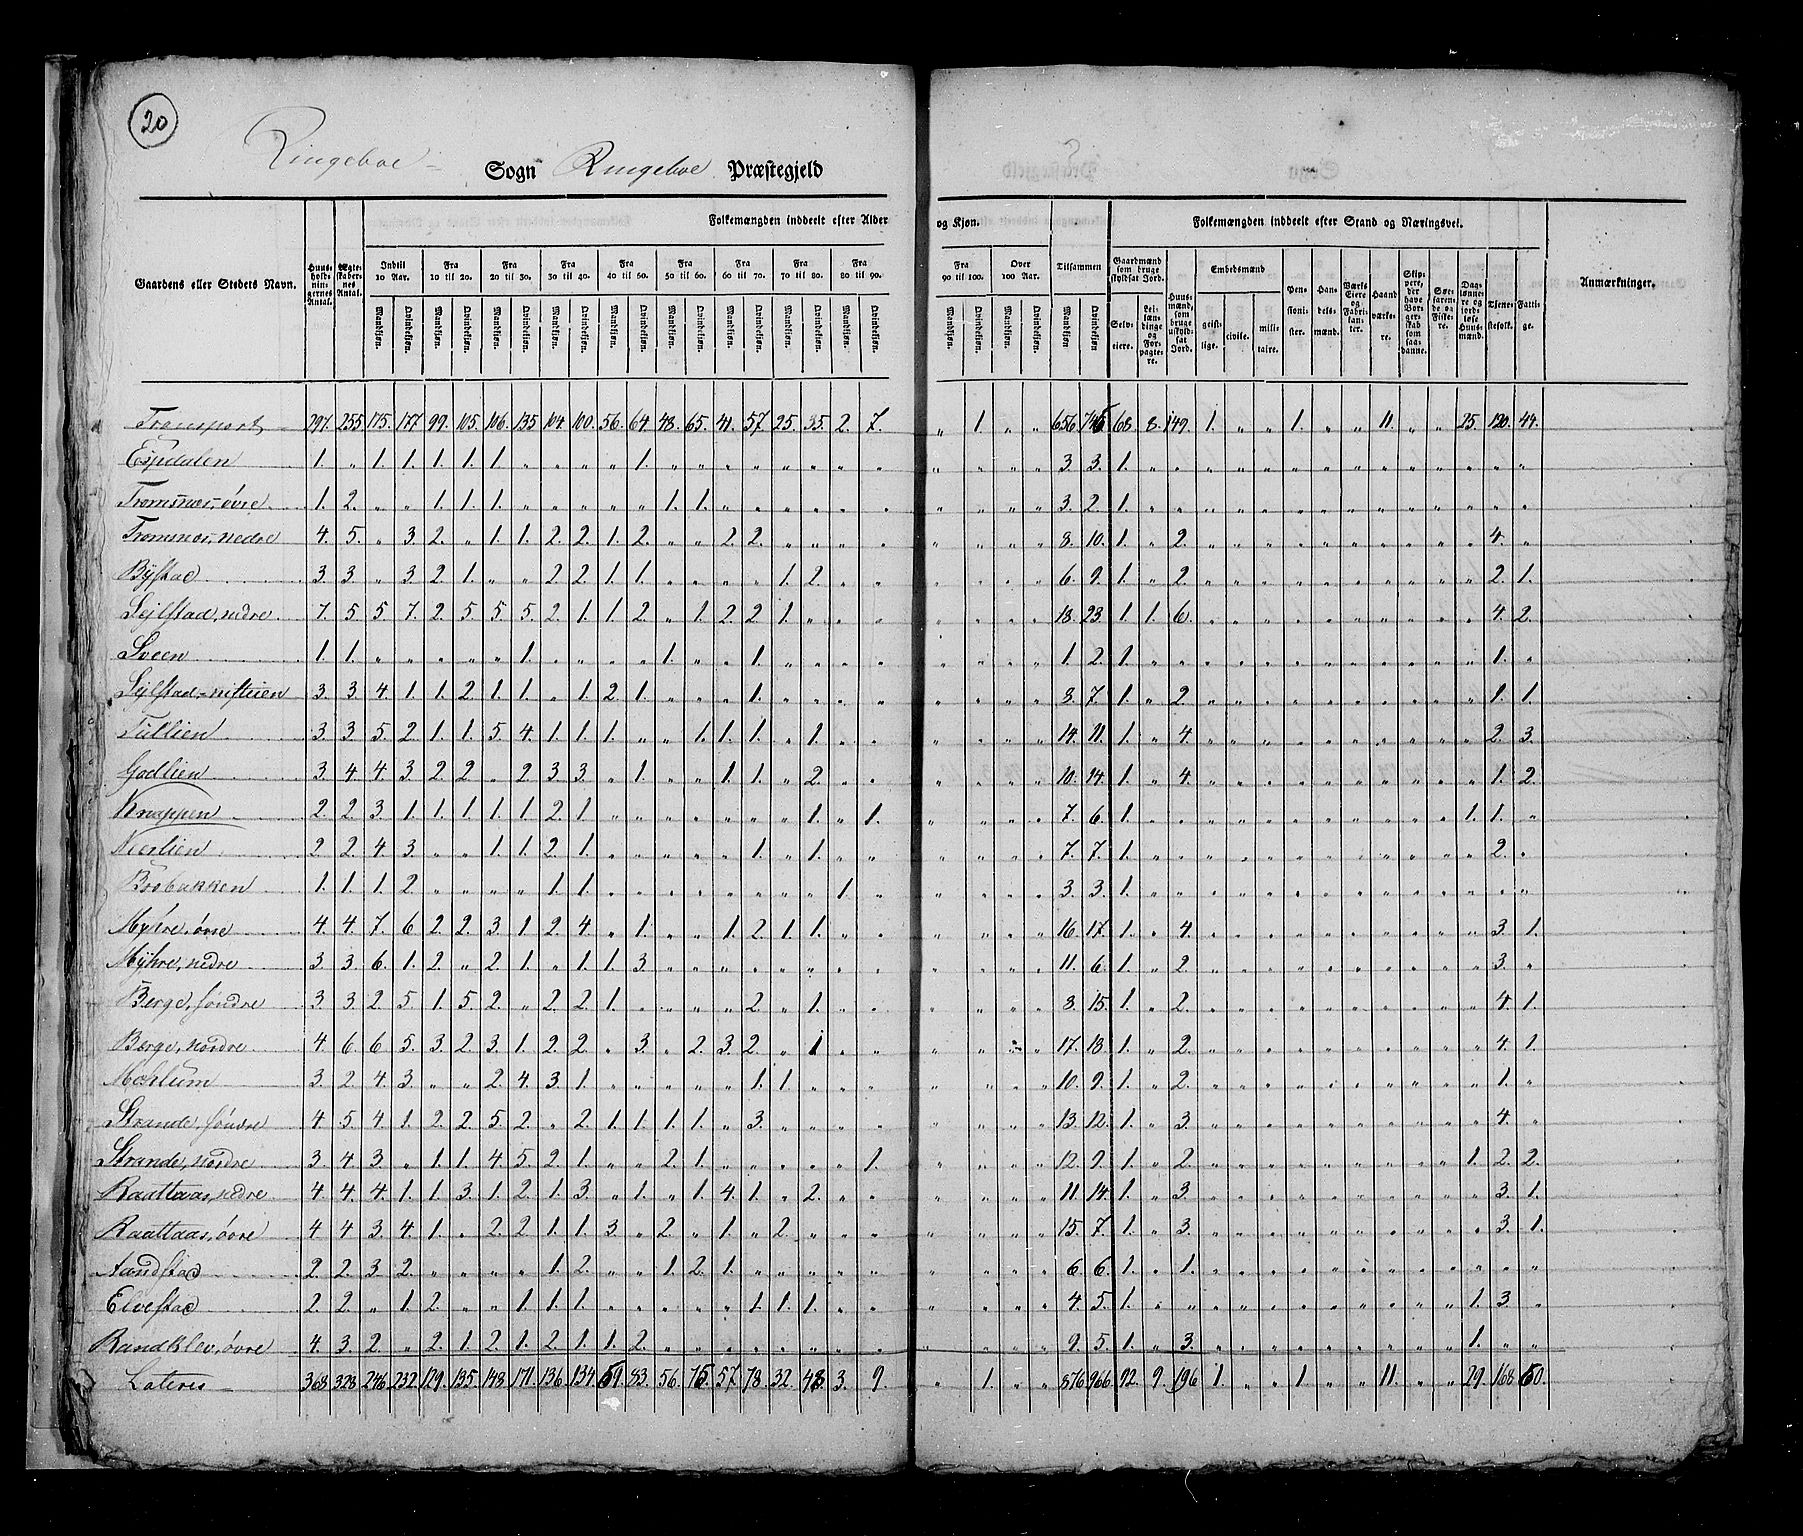 20
Ringeboe Sogn Ringeboe Præstegjeld
Folkemængden inddeelt efter Alder og Kjøn.
Folkemængden inddeelt efter Stand og Næringsvei.
Gaardens eller Stedets Navn.
Huusholdningernes Antal.
Ægteskabernes Antal.
Indtil 10 Aar. Fra 10 til 20. Fra 20 til 30. Fra 30 til 40. Fra 40 til 50. Fra 50 til 60. Fra 60 til 70. Fra 70 til 80. Fra 80 til 90. Fra 90 til 100. Over 100 Aar. Tilsammen
Mandkjøn. Qvindekjøn.
Gaardmænd som bruge skyldsat Jord.
Selveiere. Leilændinge og Forpagtere.
Huusmænd, som bruge uskyldsat Jord.
Embedsmænd
geistlige. civile. militaire.
Pensionister. Handelsmænd. Værkseiere og Fabrikanter. Haandværkere.
Dagslønnere og jordløse Huusmænd. Tjenestefolk. Fattige.
Anmærkninger.
Transport 297. 255 175. 177 99. 105. 106. 135 104. 100. 56. 64. 48. 65. 41. 57. 25. 35. 2. 7. „ 1. „ „ 656 745 68. 8. 149. 1. „ „ 1. „ „ 11. „ „ 25. 120. 44.
Espdalen 1. „ 1. 1. 1. 1. 1. „ „ „ „ 1. „ „ „ „ „ „ „ „ „ „ „ „ 3. 3. 1. „ „ „ „ „ „ „ „ „ „ „ „ „ „
Tromsnæs, øvre 1. 2. „ „ 1. 1. 1. „ „ „ „ „ 1. 1. „ „ „ „ „ „ „ „ „ „ 3. 2. 1. „ „ „ „ „ „ „ „ „ „ „ „ „ „
Tromsnæs, nedre 4. 5. „ 3. 2. „ 1. 1. 2. 2. 1. 2. „ „ 2. 2. „ „ „ „ „ „ „ „ 8. 10. 1. „ 2. „ „ „ „ „ „ „ „ „ „ 4. „
Bÿstad 3. 3. „ 3. 2. 1. „ „ 2. 2. 1. 1. „ „ „ „ 1. 2. „ „ „ „ „ „ 6. 9. 1. „ 2. „ „ „ „ „ „ „ „ „ „ 2. 1.
Sejlstad, nedre 7. 5. 5. 7. 2. 5. 5. 5. 2. 1. 1. 2. „ 1. 2. 2. 1. „ „ „ „ „ „ „ 18. 23. 1. 1. 6. „ „ „ „ „ „ „ „ „ „ 4. 2.
Sveen 1. 1. „ „ „ „ „ 1. „ „ „ „ 1. „ „ 1. „ „ „ „ „ „ „ „ 1. 2. 1. „ „ „ „ „ „ „ „ „ „ „ „ 1. „
3. 3. 4. 1. 1. 2. 1. 1. „ 1. 2. 1. „ „ „ 1. „ „ „ „ „ „ „ „ 8. 7. 1. „ 2. „ „ „ „ „ „ „ „ „ „ 1. 1.
Tullien 3. 3. 5. 2. 1. 1. 5. 4. 1. 1. 1. „ „ 1. 1. 1. „ 1. „ „ „ „ „ „ 14. 11. 1. „ 4. „ „ „ „ „ „ „ „ „ „ 2. 3.
Godlien 3. 4. 4. 3. 2. 2. „ 2. 3. 3. „ 1. „ „ 1. 1. „ 2. „ „ „ „ „ „ 10. 14. 1. „ 4. „ „ „ „ „ „ „ „ „ „ 1. 2.
Knappen 2. 2. 3. 1. 1. 1. 1. 1. 2. 1. „ „ „ „ „ „ „ 1. „ 1. „ „ „ „ 7. 6. 1. „ „ „ „ „ „ „ „ „ „ „ 1. 1. „
Neerlien 2. 2. 4. 3. „ „ 1. 1. 2. 1. „ „ „ „ „ 1. „ 1. „ „ „ „ „ „ 7. 7. 1. „ „ „ „ „ „ „ „ „ „ „ „ 2. „
Brobakken 1. 1. 1. 2. „ „ „ „ 1. 1. „ „ „ „ „ „ „ „ 1. „ „ „ „ „ 3. 3. 1. „ „ „ „ „ „ „ „ „ „ „ „ „ „
Myhre, øvre 4. 4. 7. 6. 2. 2. 3. 1. 2. 4. „ 1. „ „ 1. 2. 1. 1. „ „ „ „ „ „ 16. 17. 1. „ 4. „ „ „ „ „ „ „ „ „ „ 3. 1.
Mÿhre, nedre 3. 3. 6. 1. 2. „ 2. 1. „ 1. 1. 3. „ „ „ „ „ „ „ „ „ „ „ „ 11. 6. 1. „ 2. „ „ „ „ „ „ „ „ „ „ 3. „
Berge, søndre 3. 3. 2. 5. 1. 5. 2. „ 2. 2. 1. „ „ „ „ 2. „ 1. „ „ „ „ „ „ 8. 15. 1. „ 2. „ „ „ „ „ „ „ „ „ „ 4. 1.
Berge, nordre 4. 6. 6. 5. 3. 2. 3. 1. 2. 2. „ 3. „ 2. 3. 2. „ 1. „ „ „ „ „ „ 17. 18. 1. „ 2. „ „ „ „ „ „ „ „ „ „ 4. 1.
Mehlum 3. 2. 4. 3. „ „ 2. 4. 3. 1. „ „ „ „ „ 1. 1. „ „ „ „ „ „ „ 10. 9. 1. „ 2. „ „ „ „ „ „ „ „ „ „ 1. „
Strande, søndre 4. 5. 4. 1. 2. 2. 5. 2. „ 2. 1. 1. 1. 1. „ 3. „ „ „ „ „ „ „ „ 13. 12. 1. „ 3. „ „ „ „ „ „ „ „ „ „ 4. „
Strande, nordre 3. 4. 3. „ 1. 1. 4. 5. 2. 1. „ „ 2. 1. „ „ „ „ „ 1. „ „ „ „ 12. 9. 1. „ 2. „ „ „ „ „ „ „ „ „ 1. 2. 2.
Raattaas, nedre 4. 4. 4. 1. 1. 3. 1. 2. 1. 3. „ 1. „ 1. 4. 1. „ 2. „ „ „ „ „ „ 11. 14. 1. „ 3. „ „ „ „ „ „ „ „ „ „ 3. 1.
Raattaas, øvre 4. 4. 3. 4. 1. „ 2. 2. 1. 1. 3. „ 2. „ 1. „ 2. „ „ „ „ „ „ „ 15. 7. 1. „ 3. „ „ „ „ „ „ „ „ „ „ 3. 1.
Aandstad 2. 2. 3. 2. „ „ „ „ 1. 2. „ „ 1. 2. 1. „ „ „ „ „ „ „ „ „ 6. 6. 1. „ 1. „ „ „ „ „ „ „ „ „ „ „ „
Elvestad 2. 2. „ 1. 2. „ „ 1. 1. 1. „ „ „ „ „ 1. 1. 1. „ „ „ „ „ „ 4. 5. 1. „ „ „ „ „ „ „ „ „ „ „ 1. 3. „
Randklev, øvre 4. 3. 2. „ 2. 1. 2. 1. 2. 1. 1. 2. „ „ „ „ „ „ „ „ „ „ „ „ 9. 5. 1. „ 3. „ „ „ „ „ „ „ „ „ 1. „ „
Lateris 368 328 246 232. 129. 135. 148. 171. 136. 134. 69. 83. 56. 75. 57. 78. 32. 48. 3. 9. „ 1. „ „ 876 966 92. 9. 196 1. „ „ 1. „ „ 11. „ „ 29. 168 60.